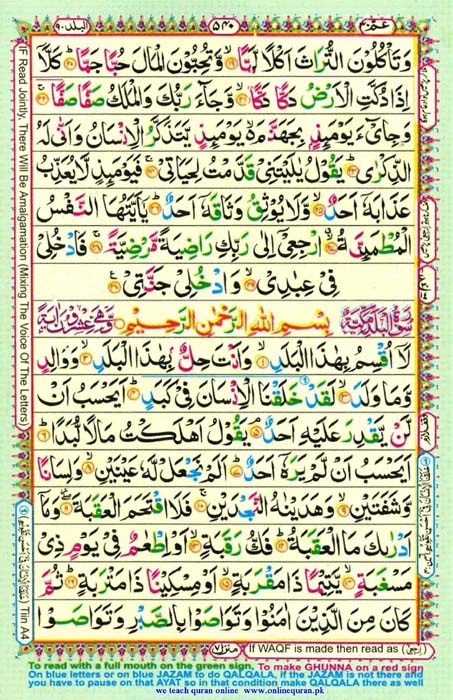 عـمّ ٣٠
٥٤٠
البلد ٩٠
وَتَاۡكُلُوۡنَ التُّرَاثَ اَكۡلًا لَّمًّا ۙ‏﴿۱۹﴾ وَّتُحِبُّوۡنَ الۡمَالَ حُبًّا جَمًّا ؕ‏﴿۲۰﴾ كَلَّاۤ
اِذَا دُكَّتِ الۡاَرۡضُ دَكًّا دَكًّا ۙ‏﴿۲۱﴾ وَّجَآءَ رَبُّكَ وَالۡمَلَكُ صَفًّا صَفًّا ۚ‏﴿۲۲﴾
وَجِاىْٓءَ يَوۡمَئِذٍۢ بِجَهَنَّمَ ۙ يَوۡمَئِذٍ يَّتَذَكَّرُ الۡاِنۡسَانُ وَاَنّٰى لَهُ
الذِّكۡرٰى ؕ‏﴿۲۳﴾ يَقُوۡلُ يٰلَيۡتَنِىۡ قَدَّمۡتُ لِحَيَاتِىۡ ۚ‏﴿۲۴﴾ فَيَوۡمَئِذٍ لَّا يُعَذِّبُ
عَذَابَهٗۤ اَحَدٌ ۙ‏﴿۲۵﴾ وَّلَا يُوۡثِقُ وَثَاقَهٗۤ اَحَدٌ ؕ‏﴿۲۶﴾ يٰۤاَيَّتُهَا النَّفۡسُ
الۡمُطۡمَئِنَّةُ ۖ‏﴿۲۷﴾ ارۡجِعِىۡۤ اِلٰى رَبِّكِ رَاضِيَةً مَّرۡضِيَّةً ۚ‏﴿۲۸﴾ فَادۡخُلِىۡ
فِىۡ عِبٰدِىۙ‏﴿۲۹﴾ وَادۡخُلِىۡ جَنَّتِى‏﴿۳۰﴾
سُوۡرَةُ الۡبَلَدِ مَكِّيَّةٌ بِسۡمِ اللهِ الرَّحۡمٰنِ الرَّحِيۡمِ وَّهِىَ عِشۡرُوۡنَ اٰيَةً
لَاۤ اُقۡسِمُ بِهٰذَا الۡبَلَدِ ۙ‏﴿۱﴾ وَاَنۡتَ حِلٌّۢ بِهٰذَا الۡبَلَدِ ۙ‏﴿۲﴾ وَوَالِدٍ
وَّمَا وَلَدَ ۙ‏﴿۳﴾ لَقَدۡ خَلَقۡنَا الۡاِنۡسَانَ فِىۡ كَبَدٍ ؕ‏﴿۴﴾ اَيَحۡسَبُ اَنۡ
لَّنۡ يَّقۡدِرَ عَلَيۡهِ اَحَدٌ ۘ‏﴿۵﴾ يَقُوۡلُ اَهۡلَكۡتُ مَالًا لُّبَدًا ؕ‏﴿۶﴾
اَيَحۡسَبُ اَنۡ لَّمۡ يَرَهٗۤ اَحَدٌ ؕ‏﴿۷﴾ اَلَمۡ نَجۡعَلْ لَّهٗ عَيۡنَيۡنِ ۙ‏﴿۸﴾ وَلِسَانًا
وَّشَفَتَيۡنِ ۙ‏﴿۹﴾ وَهَدَيۡنٰهُ النَّجۡدَيۡنِ ۚ‏﴿۱۰﴾ فَلَا اقۡتَحَمَ الۡعَقَبَةَ ۖ‏﴿۱۱﴾ وَمَاۤ
اَدۡرٰٮكَ مَا الۡعَقَبَةُ ؕ‏﴿۱۲﴾ فَكُّ رَقَبَةٍ ۙ‏﴿۱۳﴾ اَوۡ اِطۡعٰمٌ فِىۡ يَوۡمٍ ذِىۡ
مَسۡغَبَةٍ ۙ‏﴿۱۴﴾ يَّتِيۡمًا ذَا مَقۡرَبَةٍ ۙ‏﴿۱۵﴾ اَوۡ مِسۡكِيۡنًا ذَا مَتۡرَبَةٍ ؕ‏﴿۱۶﴾ ثُمَّ
كَانَ مِنَ الَّذِيۡنَ اٰمَنُوۡا وَتَوَاصَوۡا بِالصَّبۡرِ وَتَوَاصَوۡا
منزل ٧
If WAQF is made then read as
IF Read Jointly, There Will Be Amalgamation (Mixing The Voice Of The Letters)
Tiin A4
To read with a full mouth on the green sign. To make GHUNNA on a red sign
On blue letters or on blue JAZAM to do QALQALA, if the JAZAM is not there and
you have to pause on that AYAT so in that condition make QALQALA there as well
we teach quran online www.onlinequran.pk